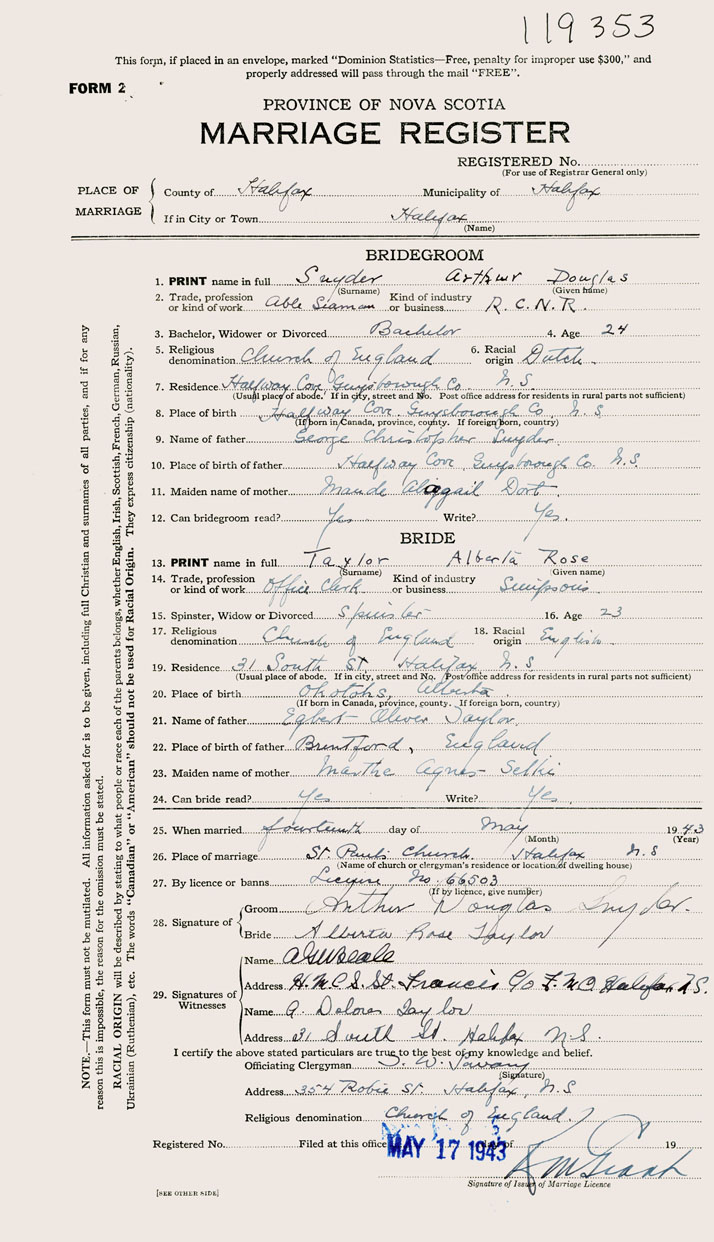 119353
This form, if placed in an envelope, marked "Dominion Statistics—Free, penalty for improper use $300," and
properly addressed will pass through the mail "FREE".
FORM 2
PROVINCE OF NOVA SCOTIA
MARRIAGE REGISTER
REGISTERED No.
(For use of Registrar General only)
PLACE OF MARRIAGE
County of Halifax Municipality of Halifax
If in City or Town Halifax
(Name)
BRIDEGROOM
1. PRINT name in full Snyder Arthur Douglas
(Surname) (Given name)
2. Trade, profession or kind of work Able Seaman Kind of industry or business R.C.N.R.
3. Bachelor, Widower or Divorced Bachelor 4. Age 24
5. Religious denomination Church of England 6. Racial origin Dutch
7. Residence Halfway Cove Guysborough Co. N.S.
(Usual place of abode. If in city, street and No. Post office address for residents in rural parts not sufficient)
8. Place of birth Halfway Cove Guysborough Co, N.S.
(If born in Canada, province, county. If foreign born, country)
9. Name of father George Christopher Snyder
10. Place of birth of father Halfway Cove, Guysborough Co. N.S.
11. Maiden name of mother Maude Abiggail Dort
12. Can bridegroom read? Yes Write? Yes.
BRIDE
13. PRINT name in full Taylor Alberta Rose
(Surname) (Given name)
14. Trade, profession or kind of work Office Clerk Kind of industry or business Simpsons
15. Spinster, Widow or Divorced Spinster 16. Age 23
17. Religious denomination Church of England 18. Racial origin English
19. Residence 31 South St. Halifax N.S.
(Usual place of abode. If in city, street and No. Post office address for residents in rural parts not sufficient)
20. Place of birth Okotoks, Alberta
(If born in Canada, province, county. If foreign born, country)
21. Name of father Egbert Oliver Taylor
22. Place of birth of father Brentford, England
23. Maiden name of mother Martha Agnes Selkie
24. Can bride read? Yes Write? Yes.
25. When married fourteenth day of May 1943
(Month) (Year)
26. Place of marriage St. Pauls Church. Halifax N.S
(Name of church or clergyman's residence or location of dwelling house)
27. By licence or banns License No. 66503
(If by licence, give number)
28. Signature of
Groom Arthur Douglas Snyder.
Bride Alberta Rose Taylor
29. Signatures of Witnesses
Name
Address H.M.C.S. St. Francis C/o F.M.O Halifax N.S.
Name A. Delores Taylor
Address 31 South St. Halifax N.S.
I certify the above stated particulars are true to the best of my knowledge and belief.
Officiating Clergyman
(Signature)
Address 354 Robie St. Halifax, N.S
Religious denomination Church of England
Registered No. Filed at this office MAY 17 1943 day of 19
Signature of Issuer of Marriage Licence
[SEE OTHER SIDE]
NOTE.—This form must not be mutilated. All information asked for is to be given, including full Christian and surnames of all parties, and if for any
reason this is impossible, the reason for the omission must be stated.
RACIAL ORIGIN will be described by stating to what people or race each of the parents belongs, whether English, Irish, Scottish, French, German, Russian,
Ukrainian (Ruthenian), etc. The words "Canadian" or "American" should not be used for Racial Origin. They express citizenship (nationality).